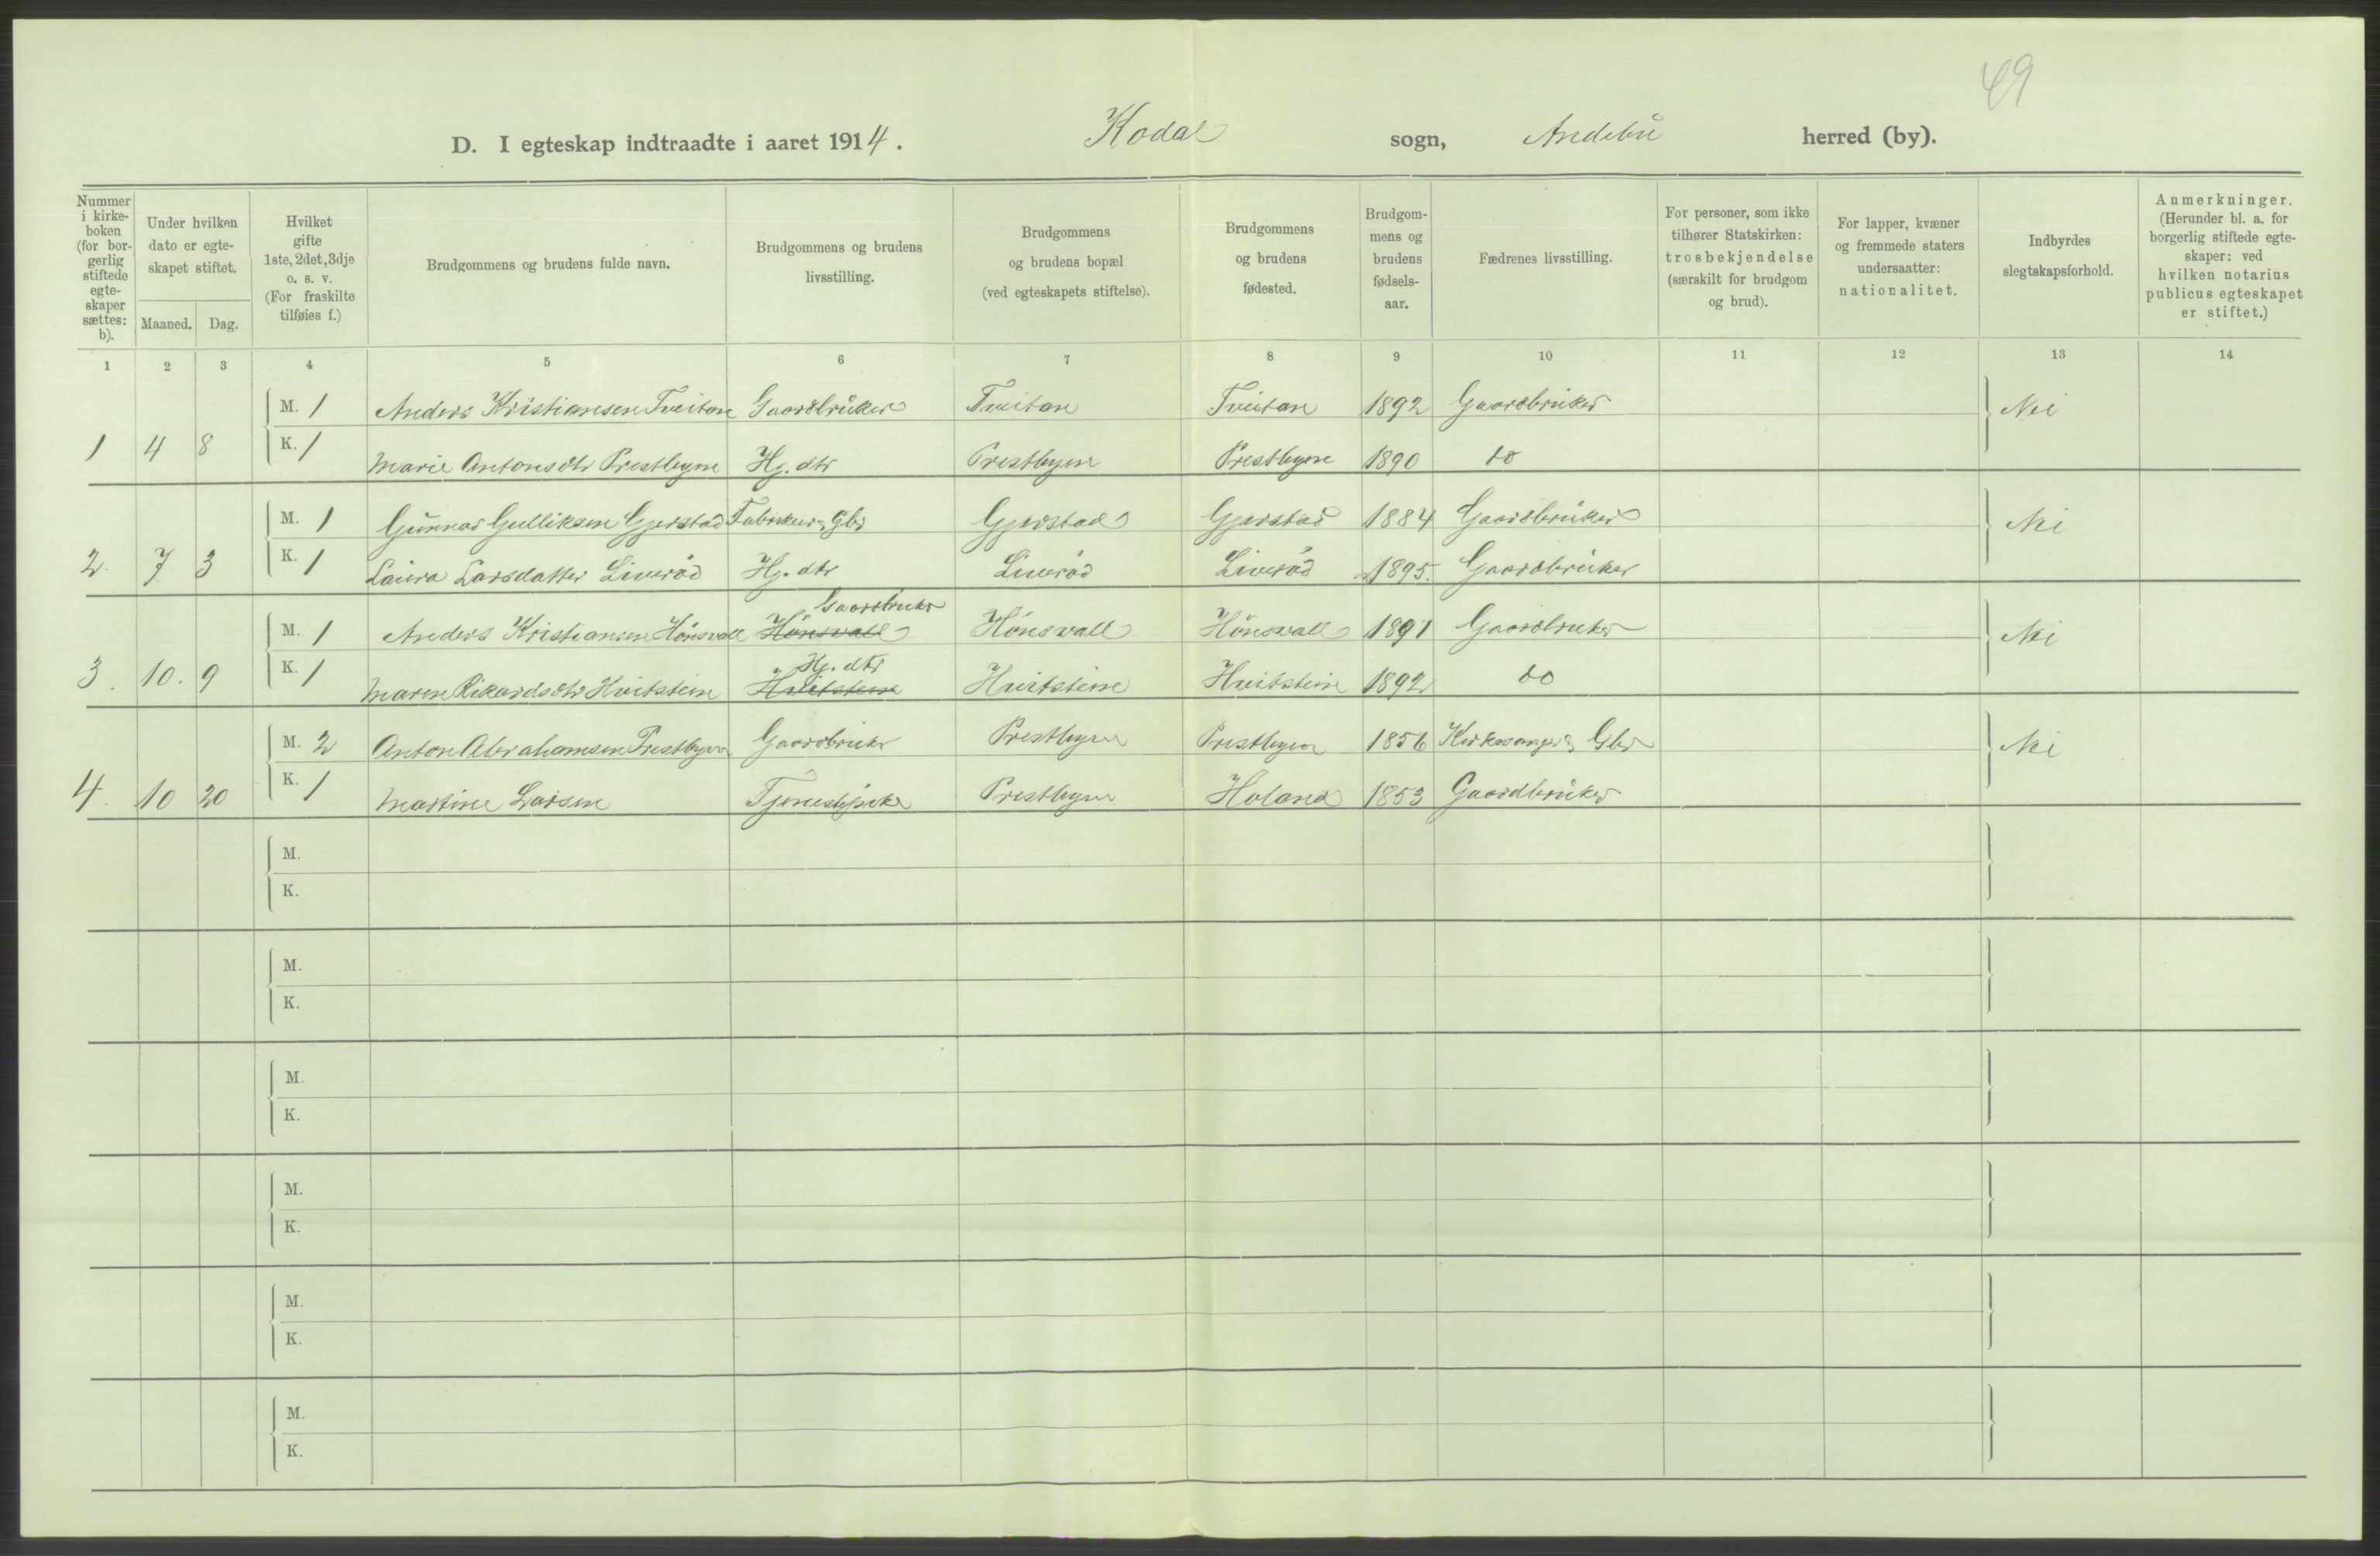 49
D. I egteskap indtraadte i aaret 1914. Kodal sogn, Andebu herred (by).
Nummer i kirke-boken (for bor-gerlig stiftede egte-skaper sættes: b).
Under hvilken dato er egte-skapet stiftet.
Maaned. Dag.
Hvilket gifte 1ste, 2det, 3dje o. s. v. (For fraskilte tilføies f.)
Brudgommens og brudens fulde navn.
Brudgommens og brudens livsstilling.
Brudgommens og brudens bopæl (ved egteskapets stiftelse).
Brudgommens og brudens fødested.
Brudgom-mens og brudens fødsels-aar.
Fædrenes livsstilling.
For personer, som ikke tilhører Statskirken: trosbekjendelse (særskilt for brudgom og brud).
For lapper, kvæner og fremmede staters undersaatter: nationalitet.
Indbyrdes slegtskapsforhold.
Anmerkninger. (Herunder bl. a. for borgerlig stiftede egte-skaper: ved hvilken notarius publicus egteskapet er stiftet.)
1 2 3 4 5 6 7 8 9 10 11 12 13 14
M. 1 Anders Kristiansen Tveitan Gaardbruker Tveitan Tveitan 1892 Gaardbruker Nei
1 4 8 K. 1 Marie Antonsdtr Prestbyen Hj. dtr Prestbyen Prestbyen 1890 do
M. 1 Gunnar Gulliksen Gjerstad Gbr Gjerstad Gjerstad 1884 Gaardbruker Nei
2. 7 3 K. 1 Laura Larsdatter Liverød Hj. dtr Liverød Liverød 1895. Gaardbruker
Gaardbruker
M. 1 Anders Kristiansen Hønsvall Hønsvall Hønsvall Hønsvall 1891 Gaardbruker Nei
Hj. dtr
3. 10. 9 K. 1 Maren Rikardsdtr Hvitstein Hvitstein Hvitstein Hvitstein 1892 do
M. 2 Anton Abrahamsen Prestbyen Gaardbruker Prestbyen Prestbyen 1856 Kirkesanger & Gbr Nei
4. 10 20 K. 1 Martine Larsen Prestbyen 1853 Gaardbruker
M.
K.
M.
K.
M.
K.
M.
K.
M.
K.
M.
K.